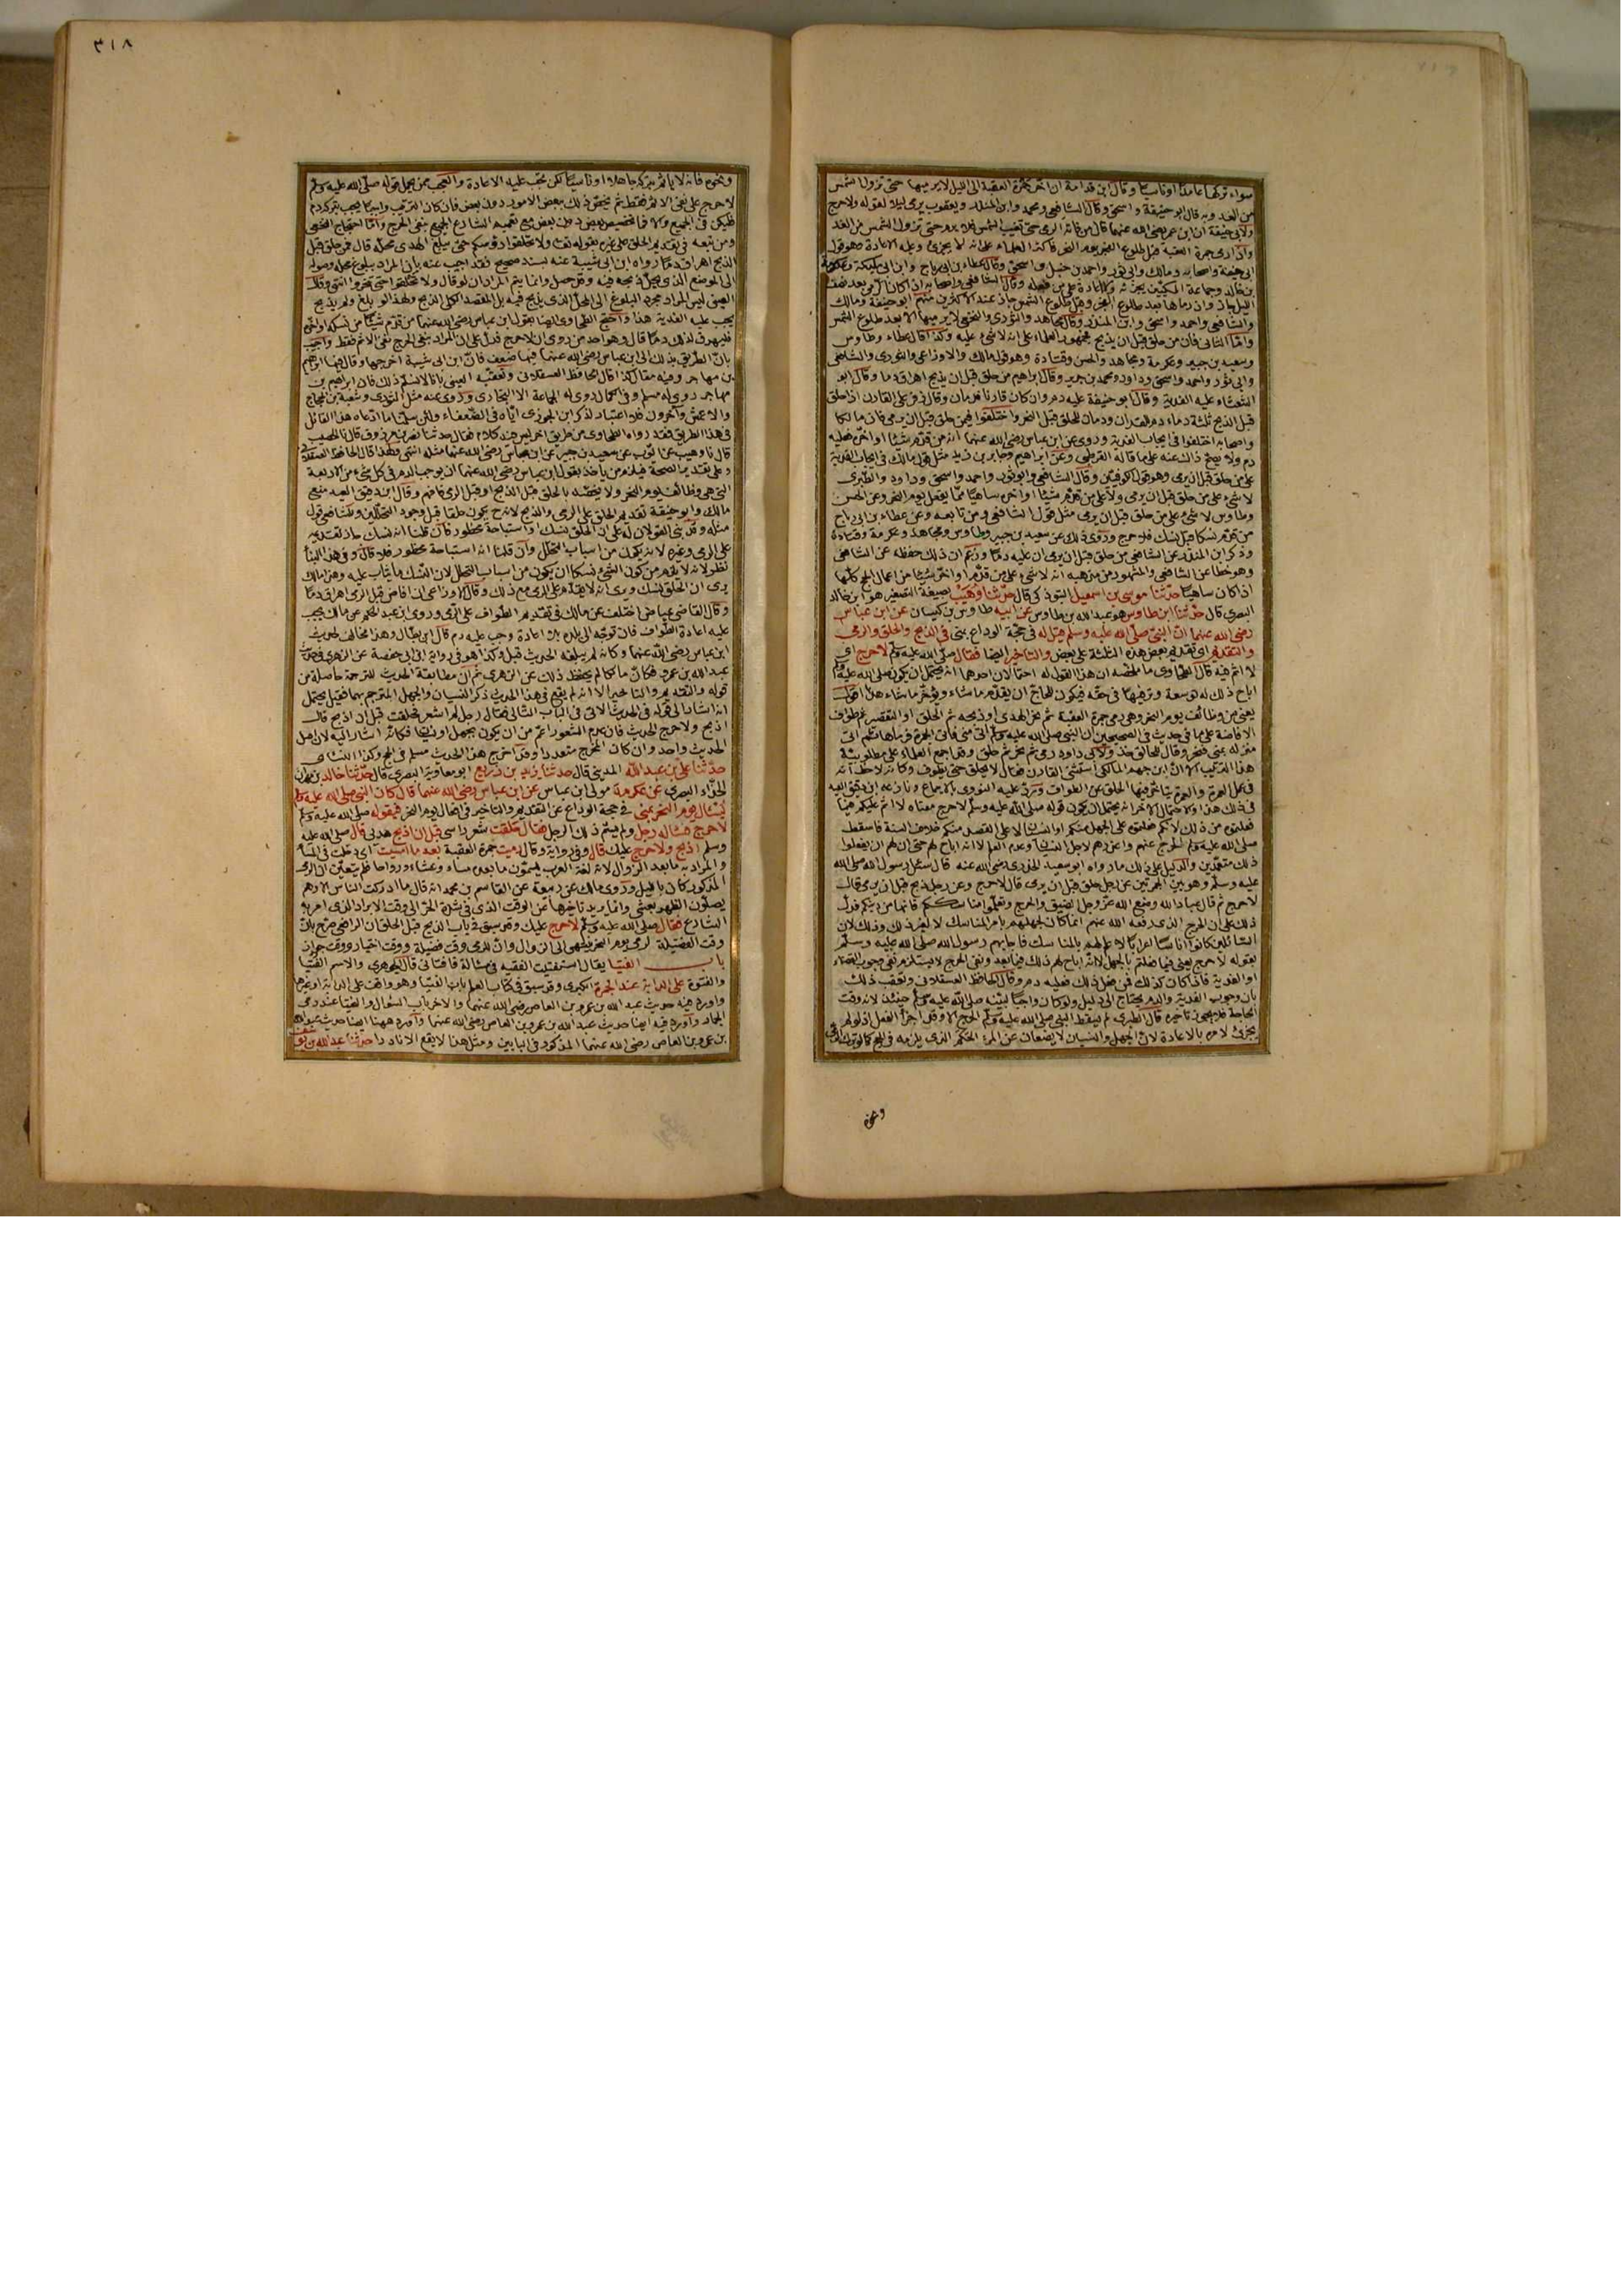 سواء تركها عامدًا او ناسيًا وقال ابن قدامة ان اخر جمرة العقبة الى الليل لا يرميها حتى تزول الشمس
من الغد وبه قال ابو حنيفة واسحق وقال الشافعي ومحمد وابن المنذر ويعقوب يرمي ليلا لقوله ولا حرج
ولابي حنيفة ان ابن عمر رضي الله عنهما قال من فاته الرمي حتى تغيب الشمس فلا يرم حتى تزول الشمس من الغد
واذا رمى جمرة العقبة قبل طلوع الفجر يوم النحر فاكثر العلماء على انه لا يجزئ وعليه الاعادة وهو قول
ابي حنيفة واصحابه ومالك وابي ثور واحمد بن حنبل واسحق وقال عطاء بن ابي رباح وابن ابي مليكة وعكرمة
بن خالد وجماعة المكيين يجزئه ولا اعادة على من فعله وقال الشافعي واصحابه اذا كان الرمي بعد نصف
الليل جاز وان رماها بعد طلوع الفجر وقبل طلوع الشمس جاز عند الاكثرين منهم ابو حنيفة ومالك
والشافعي واحمد واسحق وابن المنذر وقال مجاهد والثوري والنخعي لا يرميها الا بعد طلوع الشمس
واما الثاني فان من حلق قبل ان يذبح فجمهور العلماء على انه لا شيء عليه وكذا قال عطاء وطاوس
وسعيد بن جبير وعكرمة ومجاهد والحسن وقتادة وهو قول مالك والاوزاعي والثوري والشافعي
وابي ثور واحمد واسحق وداود ومحمد بن جرير وقال ابراهيم من حلق قبل ان يذبح اهراق دما وقال ابو
الشعثاء عليه الفدية وقال ابو حنيفة عليه دم وان كان قارنا فدمان وقال زفر على القارن اذا حلق
قبل الذبح ثلثة دماء دم للقران ودمان للحلق قبل النحر واختلفوا فيمن حلق قبل ان يرمي فان مالكا
واصحابه اختلفوا في ايجاب الفدية وروي عن ابن عباس رضي الله عنهما انه من قدم شيئا او اخره فعليه
دم ولا يصح ذلك عنه على ما قاله القرطبي وعن ابراهيم وجابر بن زيد مثل قول مالك في ايجاب الفدية
على من حلق قبل ان يرمي وهو قول الكوفيين وقال الشافعي وابو ثور واحمد واسحق وداود والطبري
لا شيء على من حلق قبل ان يرمي ولا على من قدم شيئا او اخره ساهيا مما يفعل يوم النحر وعن الحسن
وطاوس لا شيء على من حلق قبل ان يرمي مثل قول الشافعي ومن تابعه وعن عطاء بن ابي رباح
من قدم نسكا قبل نسك فلا حرج وروي ذلك عن سعيد بن جبير وطاوس ومجاهد وعكرمة وقتادة
وذكر ابن المنذر عن الشافعي من حلق قبل ان يرمي ان عليه دما وزعم ان ذلك حفظه عن الشافعي
وهو خطأ عن الشافعي والمشهور من مذهبه انه لا شيء على من قدم او اخر شيئا من اعمال الحج كلها
اذا كان ساهيا حدثنا موسى بن اسمعيل التبوذكي قال حدثنا وهيب بصيغة التصغير هو ابن خالد
البصري قال حدثنا ابن طاوس هو عبد الله بن طاوس عن ابيه طاوس بن كيسان عن ابن عباس
رضي الله عنهما ان النبي صلى الله عليه وسلم قيل له في حجة الوداع بمنى في الذبح والحلق والرمي
والتقديم اي تقديم بعض هذه الثلثة على بعض والتاخير ايضا فقال صلى الله عليه وسلم لا حرج اي
لا اثم فيه قال الطحاوي ما ملخصه ان هذا القول له احتمالان احدهما انه يحتمل ان يكون صلى الله عليه وسلم
اباح ذلك له توسعة وترفيها في حقه فيكون للحاج ان يقدم ما شاء ويؤخر ما شاء هذا
يعني من وظائف يوم النحر وهي رمي جمرة العقبة ثم نحر الهدي او ذبحه ثم الحلق او التقصير ثم طواف
الافاضة على ما في حديث في الصحيحين ان النبي صلى الله عليه وسلم اتى منى فاتى الجمرة فرماها ثم اتى
منزله بمنى فنحر وقال للحالق خذ ولابي داود رمى ثم نحر ثم حلق وقد اجمع العلماء على مطلوبية
هذا الترتيب الا ان ابن جهم المالكي استثنى القارن فقال لا يحلق حتى يطوف وكانه لاحظ انه
في عمل العمرة والعمرة يتاخر فيها الحلق عن الطواف ورد عليه النووي بالاجماع ونازعه ابن دقيق العيد
في ذلك هذا والاحتمال الاخر انه يحتمل ان يكون قوله صلى الله عليه وسلم لا حرج معناه لا اثم عليكم فيما
فعلتموه من ذلك لانكم فعلتموه على الجهل منكم او النسيان لا على القصد منكم خلاف السنة فاسقط
صلى الله عليه وسلم الحرج عنهم واعذرهم لاجل النسيان وعدم العلم لا انه اباح لهم حتى ان لهم ان يفعلوا
ذلك متعمدين والدليل على ذلك ما رواه ابو سعيد الخدري رضي الله عنه قال سئل رسول الله صلى الله
عليه وسلم وهو بين الجمرتين عن رجل حلق قبل ان يرمي قال لا حرج وعن رجل ذبح قبل ان يرمي قال
لا حرج ثم قال عباد الله وضع الله عز وجل الضيق والحرج وتعلموا مناسككم فانها من دينكم فدل
ذلك على ان الحرج الذي رفعه الله عنهم انما كان لجهلهم بامر المناسك لا لغير ذلك وذلك لان
السائلين كانوا اناسا اعرابا لا علم لهم بالمناسك فاجابهم رسول الله صلى الله عليه وسلم
بقوله لا حرج يعني فيما فعلتم بالجهل لا انه اباح لهم ذلك فيما بعد ونفي الحرج لا يستلزم نفي وجوب القضاء
او الفدية فاذا كان كذلك فمن فعل ذلك فعليه دم وقال الحافظ العسقلاني وتعقب ذلك
بان وجوب الفدية والدم يحتاج الى دليل ولو كان واجبا لبينه صلى الله عليه وسلم حينئذ لانه وقت
الحاجة فلا يجوز تاخيره قال الطبري لم يسقط النبي صلى الله عليه وسلم الحرج الا وقد اجزأ الفعل اذ لو لم
يجزئ لامره بالاعادة لان الجهل والنسيان لا يضعان عن المرء الحكم الذي يلزمه في الحج كما لو ترك الرمي
ونحوه
٣١٨
ونحوه فانه لا ياثم بتركه جاهلا او ناسيا لكن يجب عليه الاعادة والعجب ممن يحمل قوله صلى الله عليه وسلم
لا حرج على نفي الاثم فقط ثم يخص ذلك ببعض الامور دون بعض فان كان الترتيب واجبا يجب بتركه دم
فليكن في الجميع والا فما تخصيص بعض دون بعض مع تعميم الشارع الجميع بنفي الحرج واما احتجاج النخعي
ومن تبعه في تقديم الحلق على غيره بقوله تعالى ولا تحلقوا رؤسكم حتى يبلغ الهدي محله قال فمن حلق قبل
الذبح اهراق دما رواه ابن ابي شيبة عنه بسند صحيح فقد اجيب عنه بان المراد ببلوغ محله وصوله
الى الموضع الذي يحل ذبحه فيه وقد حصل وانما يتم المراد ان لو قال ولا تحلقوا حتى تنحروا انتهى وقال
العيني ليس المراد مجرد البلوغ الى المحل الذي يذبح فيه بل المقصد الكلي الذبح ولهذا لو بلغ ولم يذبح
يجب عليه الفدية هذا واحتج الطحاوي ايضا بقول ابن عباس رضي الله عنهما من قدم شيئا من نسكه او اخره
فليهرق لذلك دما قال وهو احد من روى ان لا حرج فدل على ان المراد بنفي الحرج نفي الاثم فقط واجيب
بان الطريق بذلك الى ابن عباس رضي الله عنهما فيها ضعف فان ابن ابي شيبة اخرجها وقال فيها ابراهيم
بن مهاجر وفيه مقال كذا قال الحافظ العسقلاني وتعقبه العيني بانا لا نسلم ذلك فان ابراهيم بن
مهاجر روى له مسلم وفي الكمال روى له الجماعة الا البخاري وروى عنه مثل الثوري وشعبة بن الحجاج
والاعمش وآخرون فلا اعتبار لذكر ابن الجوزي اياه في الضعفاء ولئن سلمنا ما ادعاه هذا القائل
في هذا الطريق فقد رواه الطحاوي من طريق آخر ليس فيه كلام فقال حدثنا نصر بن مرزوق قال نا الخصيب
قال نا وهيب عن ايوب عن سعيد بن جبير عن ابن عباس رضي الله عنهما مثله انتهى ولهذا قال الحافظ العسقلاني
وعلى تقدير الصحة فيلزم من ياخذ بقول ابن عباس رضي الله عنهما ان يوجب الدم في كل شيء من الاربعة
التي هي وظائف يوم النحر ولا يخصه بالحلق قبل الذبح او قبل الرمي وقال ابن دقيق العيد منع
مالك وابو حنيفة تقديم الحلق على الرمي والذبح لانه يكون حلقا قبل وجود التحللين وللشافعي قول
مثله وقد بني القولان له على ان الحلق نسك او استباحة محظور فان قلنا انه نسك جاز تقديمه
على الرمي وغيره لانه يكون من اسباب التحلل وان قلنا انه استباحة محظور فلا قال وفي هذا البناء
نظر لانه لا يلزم من كون الشيء نسكا ان يكون من اسباب التحلل لان النسك ما يثاب عليه وهذا مالك
يرى ان الحلق نسك ويرى انه لا يقدم على الرمي مع ذلك وقال الاوزاعي ان افاض قبل الرمي اهراق دما
وقال القاضي عياض اختلف عن مالك في تقديم الطواف على الرمي وروى ابن عبد الحكم عن مالك يجب
عليه اعادة الطواف فان توجه الى بلده بلا اعادة وجب عليه دم قال ابن بطال وهذا مخالف لحديث
ابن عباس رضي الله عنهما وكانه لم يبلغه الحديث قيل وكذا هو في رواية ابن ابي حفصة عن الزهري في حديث
عبد الله بن عمرو فكان مالكا لم يحفظ ذلك عن الزهري ثم ان مطابقة الحديث للترجمة حاصلة من
قوله والتقديم والتاخير الا انه لم يقع في هذا الحديث ذكر النسيان والجهل المترجم بهما فقيل يحتمل
انه اشار الى قوله في الحديث الآتي في الباب الثاني فقال رجل لم اشعر فحلقت قبل ان اذبح قال
اذبح ولا حرج الحديث فان عدم الشعور اعم من ان يكون بجهل او نسيان فكانه اشار اليه لان اصل
الحديث واحد وان كان المخرج متعددا وقد اخرج هذا الحديث مسلم في الحج وكذا النسائي
حدثنا علي بن عبد الله المديني قال حدثنا يزيد بن زريع ابو معاوية البصري قال حدثنا خالد بن مهران
الحذاء البصري عن عكرمة مولى ابن عباس عن ابن عباس رضي الله عنهما قال كان النبي صلى الله عليه وسلم
يسئل يوم النحر بمنى في حجة الوداع عن التقديم والتاخير في افعال يوم النحر فيقول صلى الله عليه وسلم
لا حرج فسأله رجل ولم يسم ذلك الرجل فقال حلقت شعر راسي قبل ان اذبح هديي قال صلى الله عليه
وسلم اذبح ولا حرج عليك قال وفي رواية وقال رميت جمرة العقبة بعد ما امسيت اي دخلت في المساء
والمراد به ما بعد الزوال لانه لغة العرب يسمون ما بعده مساء وعشاء ورواحا فلم يتعين ان الرمي
المذكور كان بالليل وروى مالك عن ربيعة عن القاسم بن محمد انه قال ما ادركت الناس الا وهم
يصلون الظهر بعشي وانما يريد تاخيرها عن الوقت الذي في شدة الحر الى وقت الابراد الذي امر به
الشارع فقال صلى الله عليه وسلم لا حرج عليك وقد سبق في باب الذبح قبل الحلق ان الرافعي صرح بان
وقت الفضيلة لرمي يوم النحر ينتهي الى الزوال وان للرمي وقت فضيلة ووقت اختيار ووقت جواز
باب الفتيا يقال استفتيت الفقيه في مسألة فافتاني قال الجوهري والاسم الفتيا
والفتوى على الدابة عند الجمرة الكبرى وقد سبق في كتاب العلم باب الفتيا وهو واقف على الدابة او غيرها
واورد فيه حديث عبد الله بن عمرو بن العاص رضي الله عنهما والاخر باب السؤال والفتيا عند رمي
الجمار واورد فيه ايضا حديث عبد الله بن عمرو بن العاص رضي الله عنهما واورد ههنا ايضا حديث عبد الله
بن عمرو بن العاص رضي الله عنهما المذكور في البابين ومثل هذا لا يقع الا نادرا حدثنا عبد الله بن يوسف